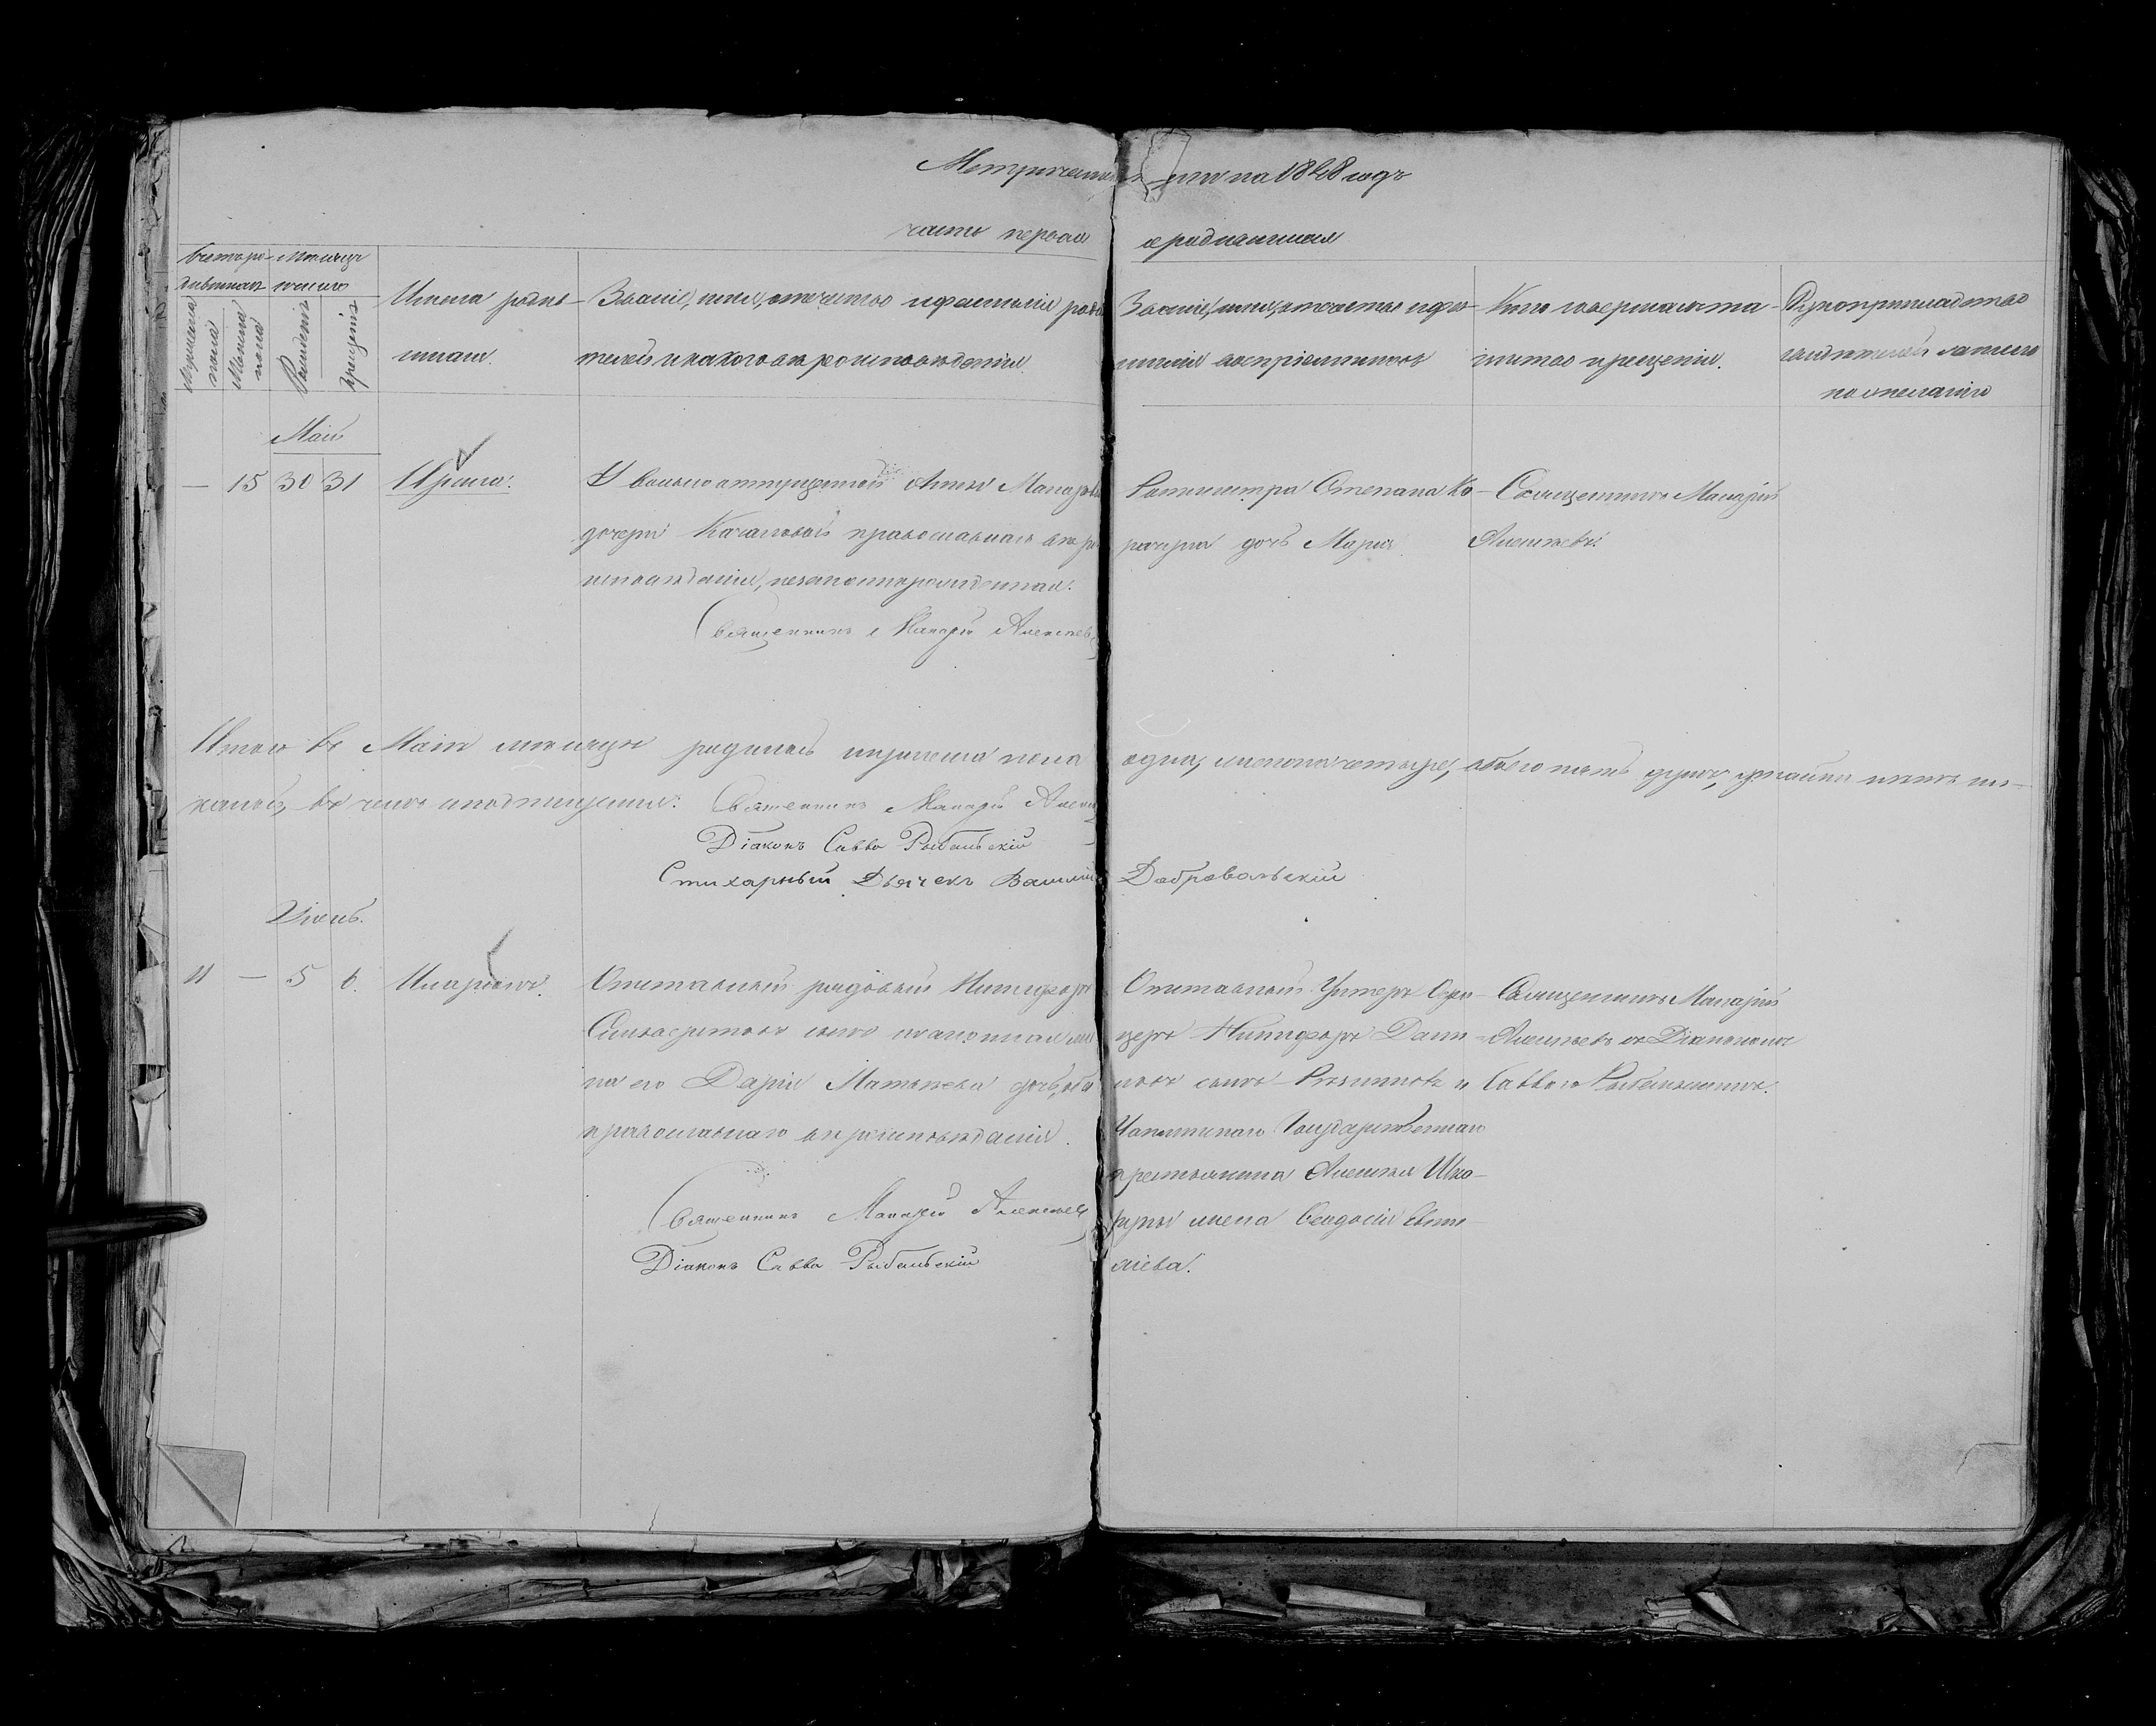 Метрической книги на 1868 годъ
часть первая о родившихся
Счетъ родившихся
Мѣсяцъ и число
Мужеска пола
Женска пола
Рожденія
крещенія
Имена родившихся.
Званіе, имя, отчество и фамилія роди-
телей и какого вѣроисповѣданія
Званіе, имя, отчество и фа-
милія воспріемниковъ
Кто совершалъ та-
инство крещенія.
Рукоприкладство
свидѣтелей записи
по желанію
Май
— 15 30 31 Ирина.
У вольноотпущенной Анны Макаровой
дочери Качаловой православнаго вѣро-
исповѣданія, незаконнорожденная.
Священникъ Макарій Алексѣевъ
Ротмистра Степана Ко-
дочь Марія.
Священникъ Макарій
Алексѣевъ.
Итого въ Маіи мѣсяцѣ родилось мужеска пола одна, женска четыре, обоего пять душъ,
Священникъ Макарій Алексѣевъ
Діаконъ Савва Рыбальскій
Стихарный Дьячекъ Василій Добровольскій
Іюнь.
11 — 5 6. Иларіонъ.
Отставный рядовый Никифоръ
сынъ и законная же-
на его Дарія Матвѣева дочь, оба
православнаго вѣроисповѣданія.
Священникъ Макарій Алексѣевъ
Діаконъ Савва Рыбальскій
Отставный Унтеръ Офи-
церъ Никифоръ Дани-
ловъ сынъ и
Государственнаго
крестьянина Алексѣя Шко-
жена Ѳеодосія
Священникъ Макарій
Алексѣевъ съ Діакономъ
Саввою Рыбальскимъ.